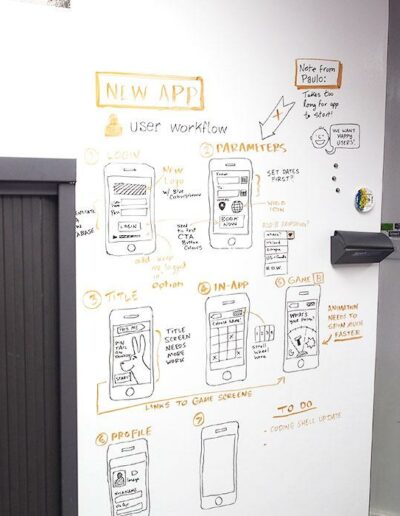 NEW APP
USER WORKFLOW
Note from
Paulo:
Takes too
long for app
to start!
WE WANT
HAPPY
USERS!
① LOGIN
New
Logo
LOGIN
add keep
me logged
in
option
② PARAMITERS
From
To
BOOK
NOW
SET DATES
FIRST?
need
to test
CTA
Button
Colours
③ TITLE
PIN
TAIL
ON
START
TITLE
SCREEN
NEEDS
MORE
WORK
④ IN-APP
X
X
Scroll
wheel
here
⑤ GAME B
WHAT'S
ANIMATION
NEEDS TO
SPIN MUCH
FASTER
LINKS TO GAME SCREENS
TO DO
- CODING SHELL UPDATE
-
⑥ PROFILE
Image
⑦